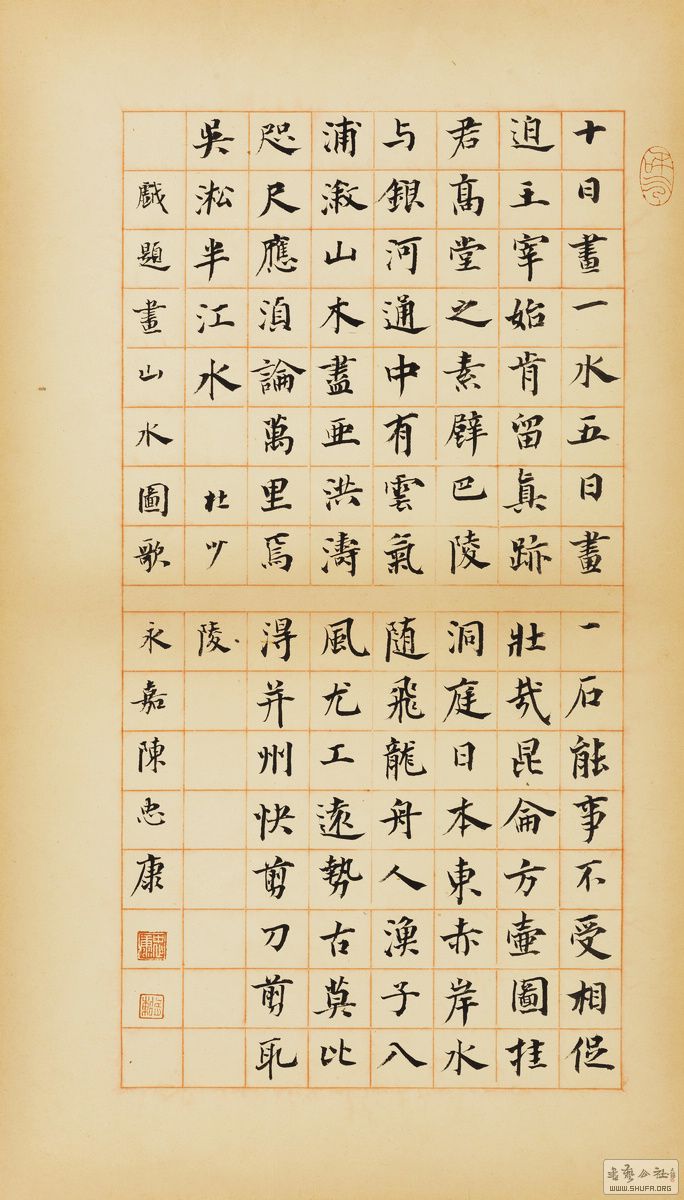 十日畫一水五日畫一石能事不受相促
迫王宰始肯留真跡壯哉昆侖方壺圖挂
君高堂之素壁巴陵洞庭日本東赤岸水
与銀河通中有雲氣随飛龍舟人漁子八
浦漵山木盡亜洪濤風尤工遠勢古莫比
咫尺應湏論萬里焉得并州快剪刀剪取
吳淞半江水 杜少陵
戲題畫山水圖歌永嘉陳忠康
書藝公社
WWW.SHUFA.ORG